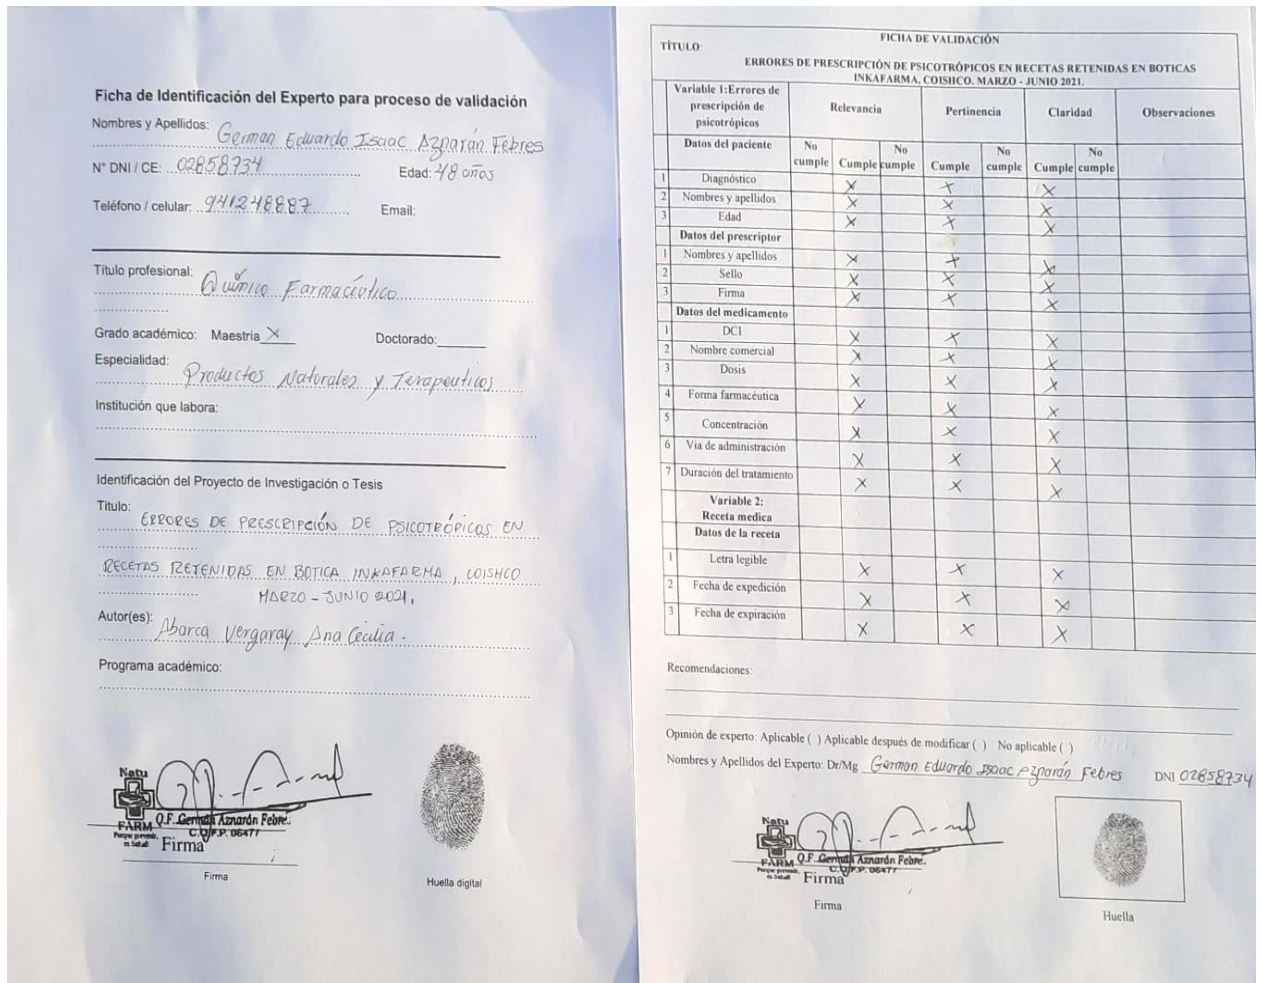 Ficha de Identificación del Experto para proceso de validación
Nombres y Apellidos: German Eduardo Isaac Aznarán Febres
N° DNI / CE: 02858734 Edad: 48 años
Teléfono / celular: 941248887 Email:
Título profesional: Químico Farmacéutico
Grado académico: Maestria X Doctorado:
Especialidad: Productos Naturales y Terapeuticos
Institución que labora:
Identificación del Proyecto de Investigación o Tesis
Titulo: ERRORES DE PRESCRIPCIÓN DE PSICOTRÓPICOS EN
RECETAS RETENIDAS EN BOTICA INKAFARMA, COISHCO
MARZO - JUNIO 2021.
Autor(es): Abarca Vergaray Ana Cecilia.
Programa académico:
Natu
FARM
Q.F. Germán Aznarán Febre.
C.Q.F.P. 06477
Firma
Firma
Huella digital
FICHA DE VALIDACIÓN
TÍTULO:
ERRORES DE PRESCRIPCIÓN DE PSICOTRÓPICOS EN RECETAS RETENIDAS EN BOTICAS
INKAFARMA, COISHCO. MARZO - JUNIO 2021.
Variable 1:Errores de prescripción de psicotrópicos Relevancia Pertinencia Claridad Observaciones
Datos del paciente No cumple Cumple No cumple Cumple No cumple Cumple No cumple
1 Diagnóstico X X X
2 Nombres y apellidos X X X
3 Edad X X X
Datos del prescriptor
1 Nombres y apellidos X X X
2 Sello X X X
3 Firma X X X
Datos del medicamento
1 DCI X X X
2 Nombre comercial X X X
3 Dosis X X X
4 Forma farmacéutica X X X
5 Concentración X X X
6 Via de administración X X X
7 Duración del tratamiento X X X
Variable 2:
Receta medica
Datos de la receta
1 Letra legible X X X
2 Fecha de expedición X X X
3 Fecha de expiración X X X
Recomendaciones:
Opinión de experto: Aplicable ( ) Aplicable después de modificar ( ) No aplicable ( )
Nombres y Apellidos del Experto: Dr/Mg German Eduardo Isaac Aznarán Febres DNI 02858734
Natu
FARM
Q.F. Germán Aznarán Febre.
C.Q.F.P. 06477
Firma
Firma
Huella